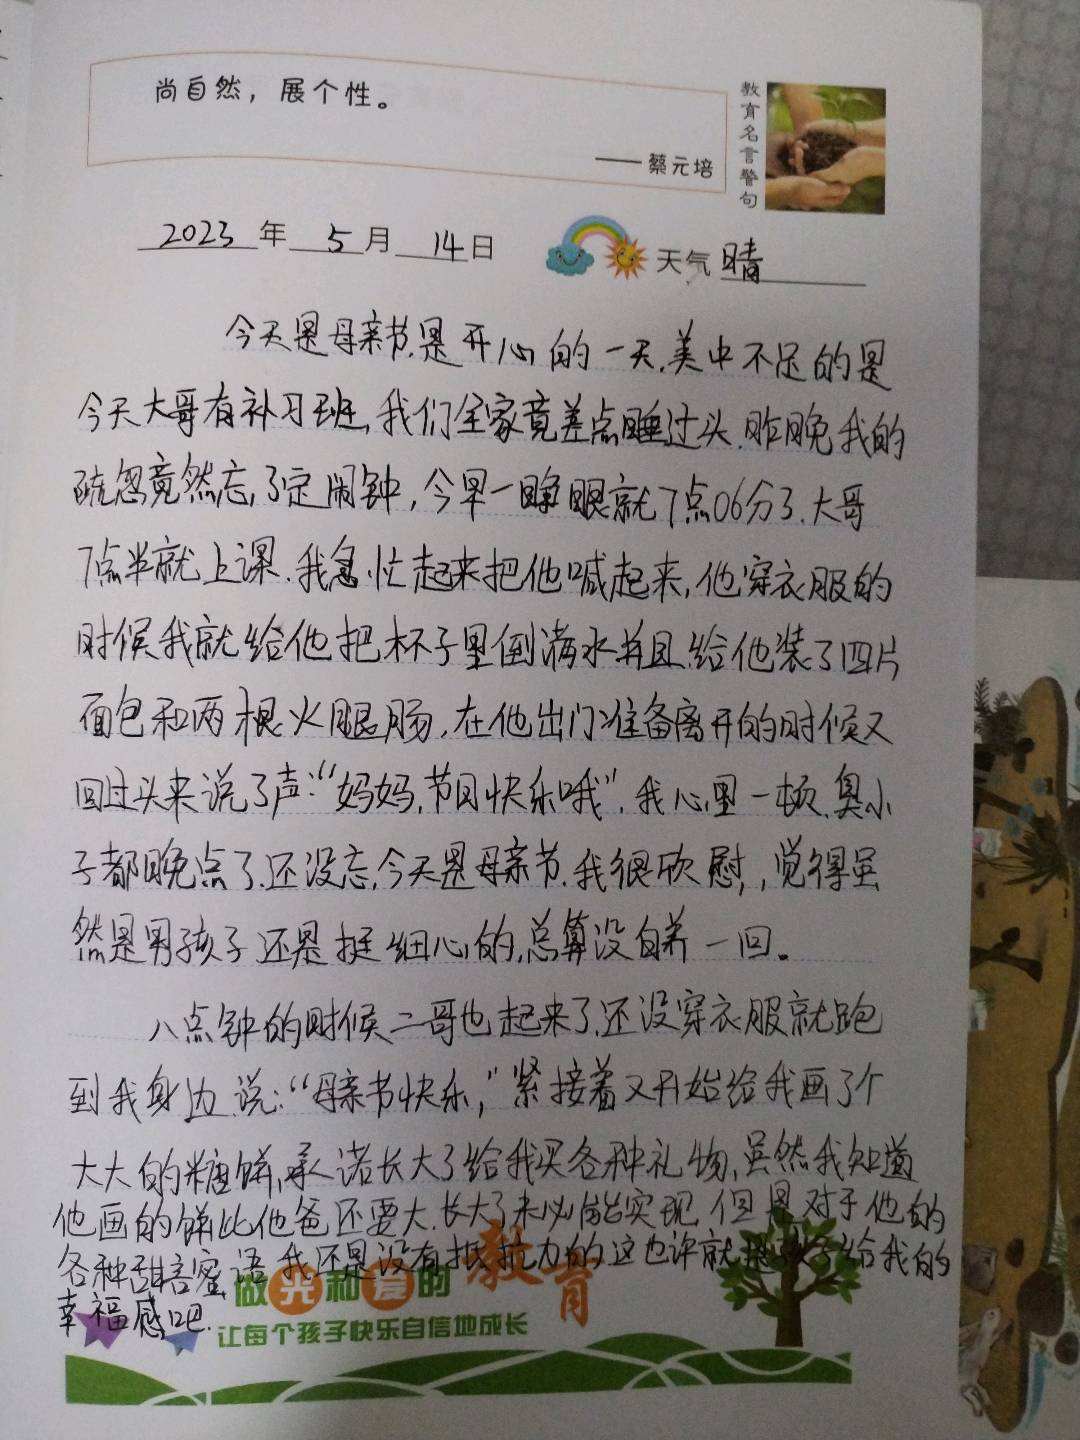 尚自然，展个性。
——蔡元培
教育名言警句
2023年5月14日
天气晴
今天是母亲节.是开心的一天.美中不足的是
今天大哥有补习班,我们全家竟差点睡过头.昨晚我的
疏忽竟然忘了定闹钟,今早一睁眼就7点06分了.大哥
7点半就上课.我急忙起来把他喊起来,他穿衣服的
时候我就给他把杯子里倒满水并且给他装了四片
面包和两根火腿肠.在他出门准备离开的时候又
回过头来说了声:“妈妈,节日快乐哦”.我心里一顿.臭小
子都晚点了.还没忘.今天是母亲节.我很欣慰,,觉得虽
然是男孩子还是挺细心的.总算没白养一回。
八点钟的时候二哥也起来了.还没穿衣服就跑
到我身边.说:“母亲节快乐,”紧接着又开始给我画了个
大大的糖饼,承诺长大了给我买各种礼物,虽然我知道
他画的饼比他爸还要大.长大了未必能实现 但是对于他的
各种甜言蜜语 我还是没有抵抗力的 这也许就是孩子给我的
幸福感吧.
做光和爱的教育
让每个孩子快乐自信地成长